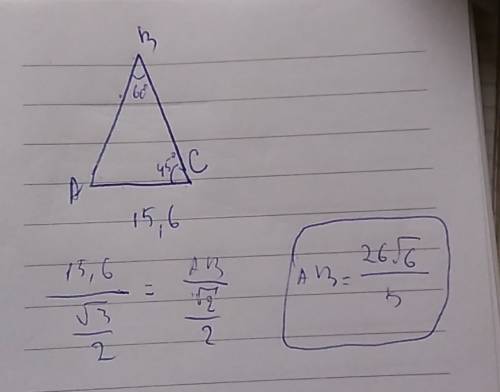 B
60°
45°
A C
15,6
15,6 / (√3/2) = AB / (√2/2)
AB = 26√6 / 5